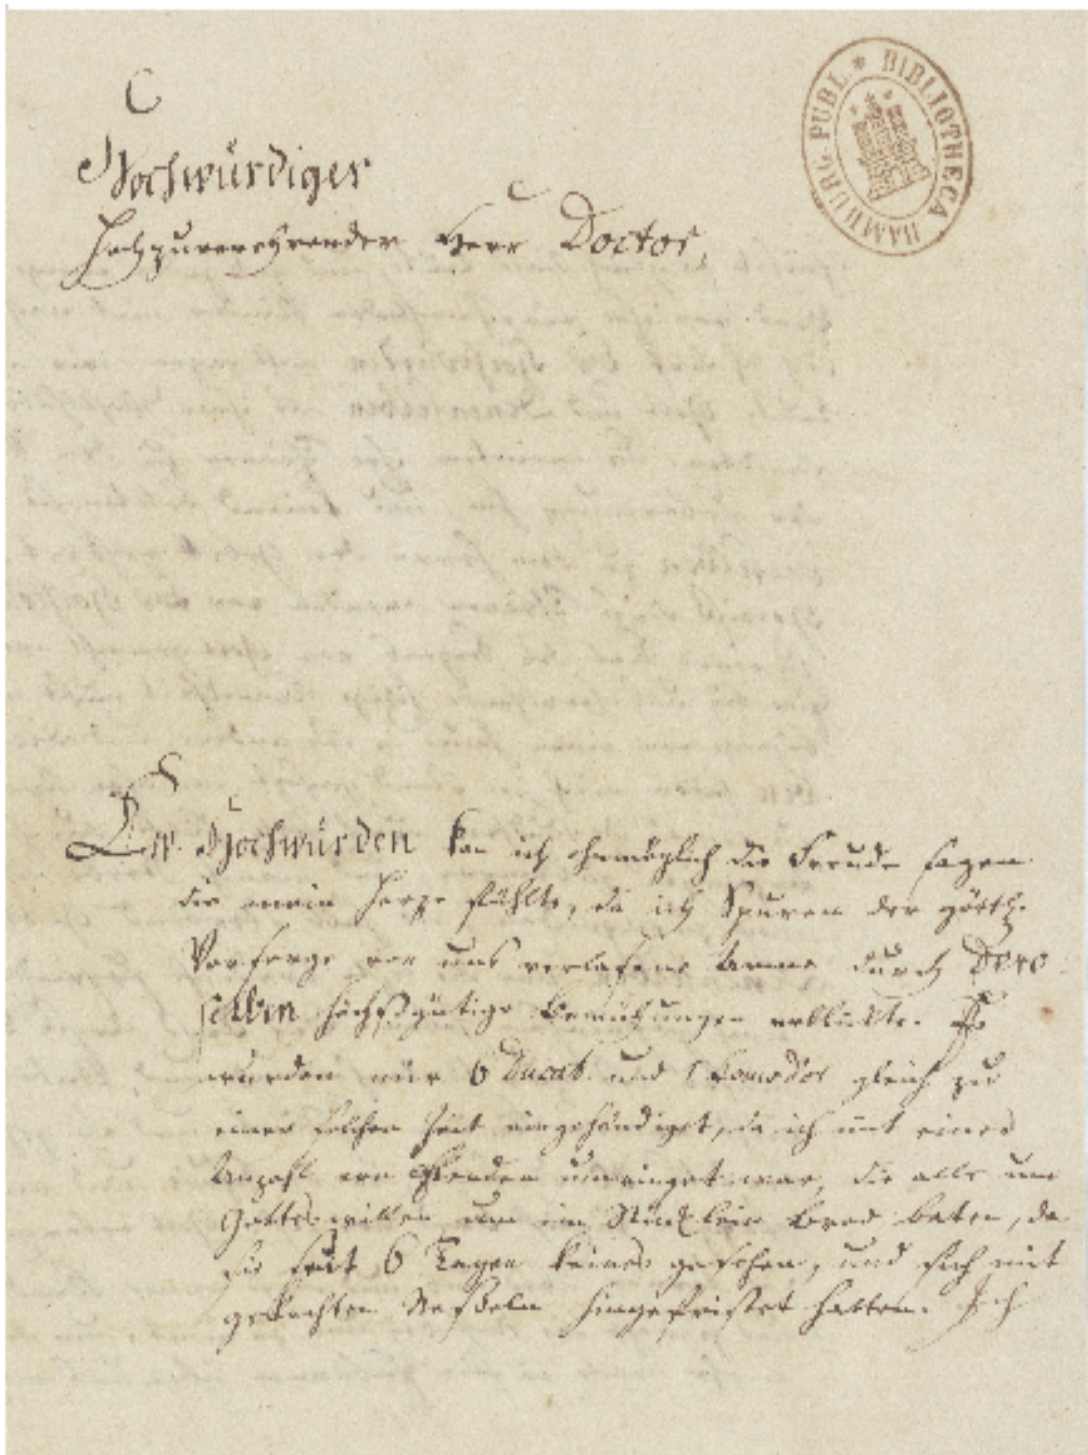 HAMBURG. PUBL. * BIBLIOTHECA
Hochwürdiger
Hochzuverehrender Herr Doctor,
Ew. Hochwürden kan ich ohnmöglich die Freude sagen
die mein Herze fühlte, da ich Spuren der göttl.
Vorsorge vor uns verlaßene Arme durch Dero
selben höchstgütige Bemühungen erblickte. Es
wurden mir 6 Ducat. und 1 gleich zu
einer solchen Zeit eingehändiget, da ich mit einer
Anzahl von Elenden umringet war, die alle um
Gottes willen um ein Stücklein Brod baten, da
sie seit 6 Tagen keines gesehen, und sich mit
gekochten Neßeln hingefristet hatten. Ich